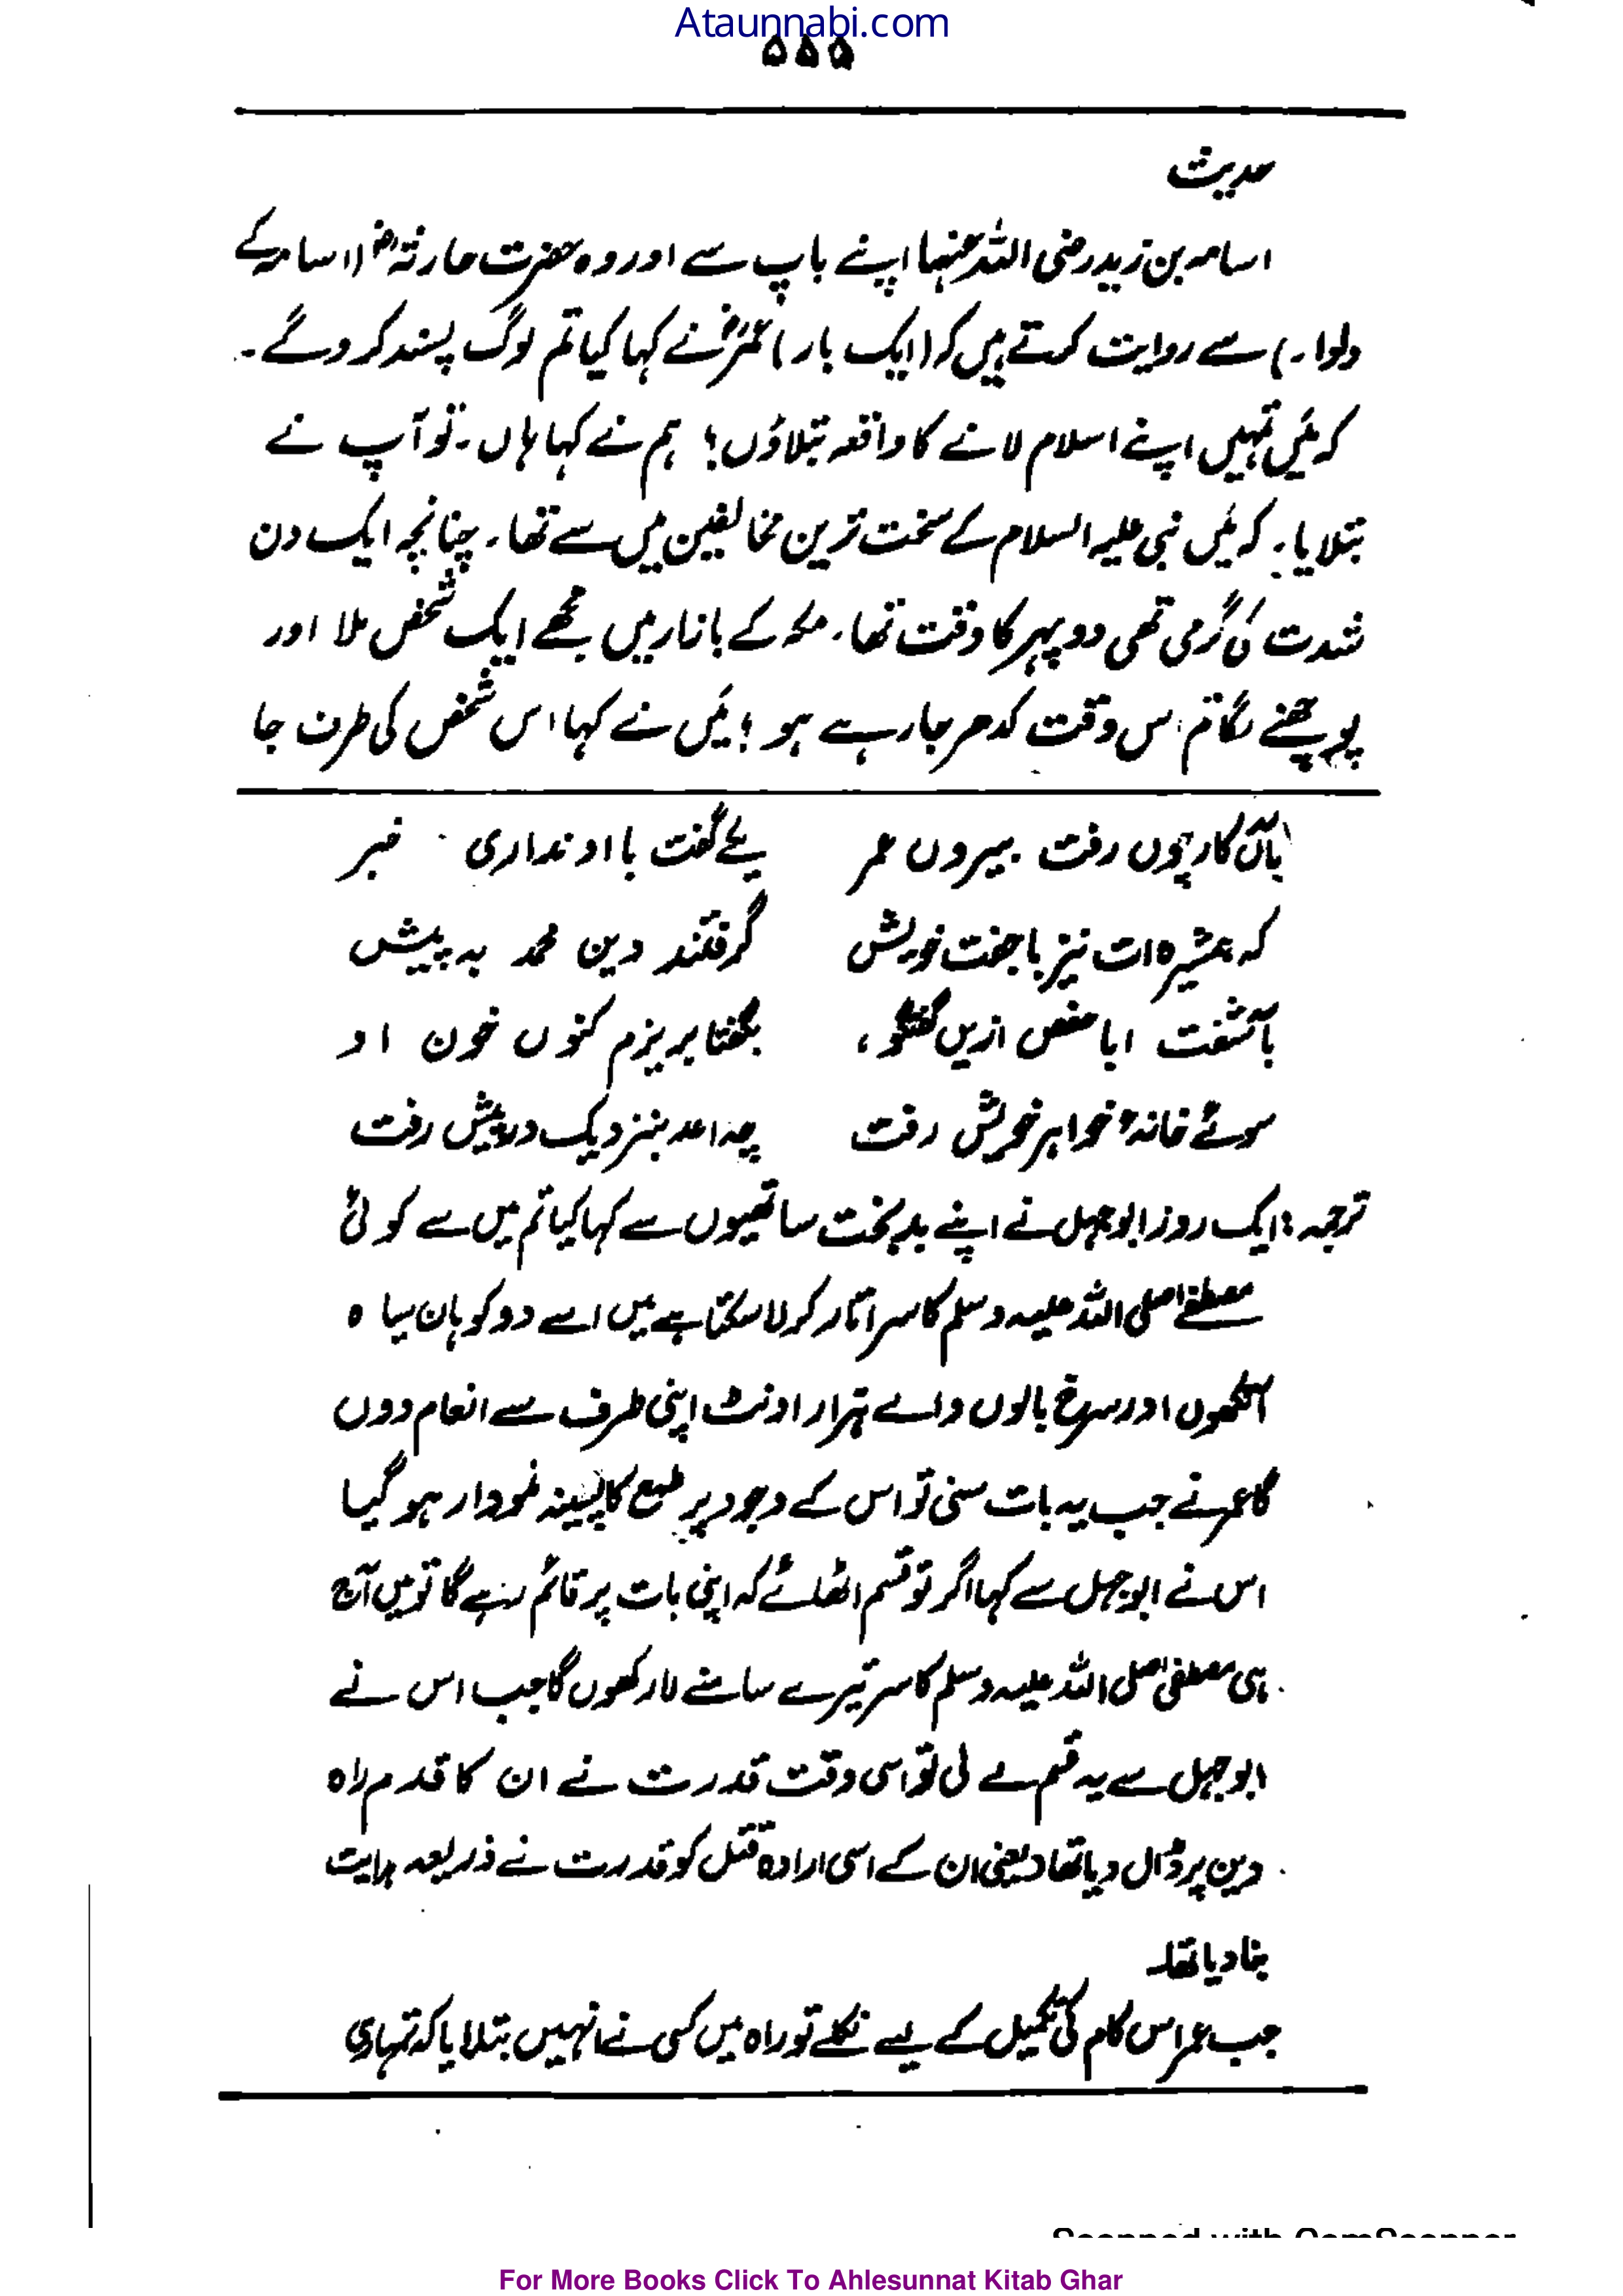 Ataunnabi.com
۵۵۵
حدیث
اسامہ بن زید رضی اللہ عنہا اپنے باپ سے اور وہ حضرت حارثہؓ (اسامہ کے
دلوا۔) سے روایت کرتے ہیں کہ (ایک بار) عمرؓ نے کہا کیا تم لوگ پسند کرو گے۔
کہ میں تمہیں اپنے اسلام لانے کا واقعہ بتلاؤں؟ ہم نے کہا ہاں۔ تو آپ نے
بتلایا۔ کہ میں نبی علیہ السلام کے سخت ترین مخالفین میں سے تھا۔ چنانچہ ایک دن
شدت کی گرمی تھی دوپہر کا وقت تھا۔ مکہ کے بازار میں مجھے ایک شخص ملا اور
پوچھنے لگا تم اس وقت کدھر جا رہے ہو؟ میں نے کہا اس شخص کی طرف جا
بآں کار چوں رفت بیروں عمر یکے گفت با او نداری خبر
کہ ہمشیرہ ات نیز با جفت خویش گرفتند دین محمد بہ پیش
بآشفت ابا حفص ازیں گفتگو، بگفتا بریزم کنوں خون او
سوئے خانۂ خواہر خویش رفت چہ آمد بنزدیک در پیش رفت
ترجمہ: ایک روز ابوجہل نے اپنے بدبخت ساتھیوں سے کہا کیا تم میں سے کوئی
مصطفےٰ صلی اللہ علیہ وسلم کا سر اتار کر لا سکتا ہے میں اسے دو کوہان سیاہ
آنکھوں اور سرخ بالوں والے ہزار اونٹ اپنی طرف سے انعام دوں
گا عمر نے جب یہ بات سنی تو اس کے وجود پر طمع کا پسینہ نمودار ہو گیا
اس نے ابوجہل سے کہا اگر تو قسم اٹھائے کہ اپنی بات پر قائم رہے گا تو میں آج
ہی مصطفیٰ صلی اللہ علیہ وسلم کا سر تیرے سامنے لا رکھوں گا جب اس نے
ابوجہل سے یہ قسم لے لی تو اسی وقت قدرت نے ان کا قدم راہ
دین پر ڈال دیا تھا دیعنی ان کے اسی ارادہ قتل کو قدرت نے ذریعہ ہدایت
بنا دیا تھا۔
جب عمر اس کام کی تکمیل کے لیے نکلے تو راہ میں کسی نے انہیں بتلایا کہ تمہاری
Scanned with CamScanner
For More Books Click To Ahlesunnat Kitab Ghar